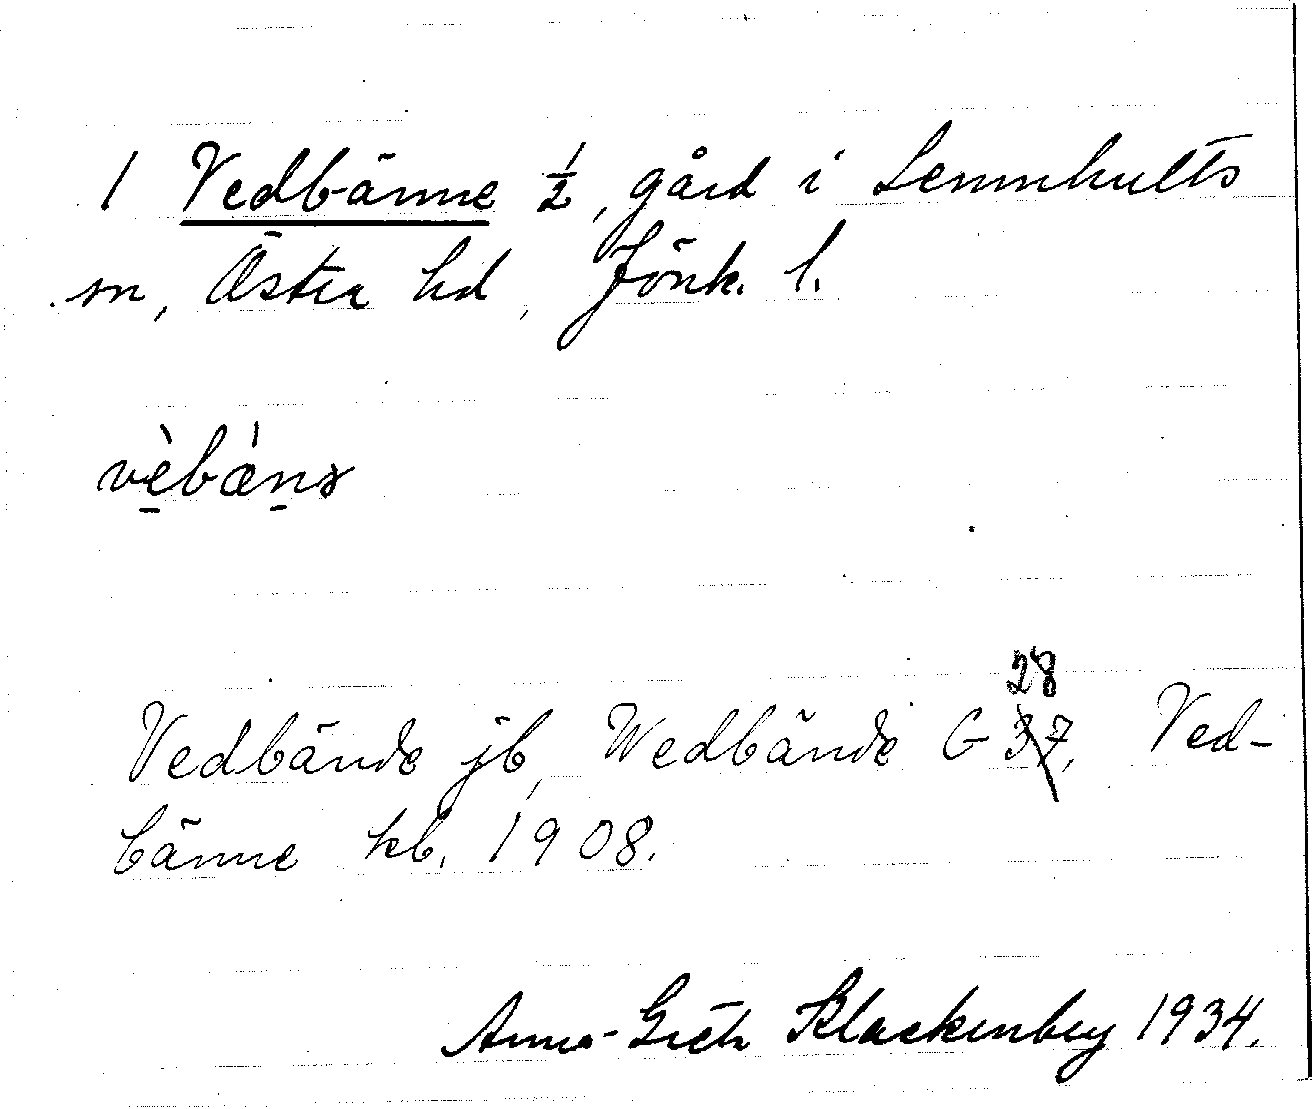 1 Vedbänne ½, gård i Lemnhults
sn, Östra hd, Jönk. l.
vèbànə
Vedbände jb, Wedbände G 28 37, Ved-
bänne kb. 1908.
Anna-Greta Klackenberg 1934.